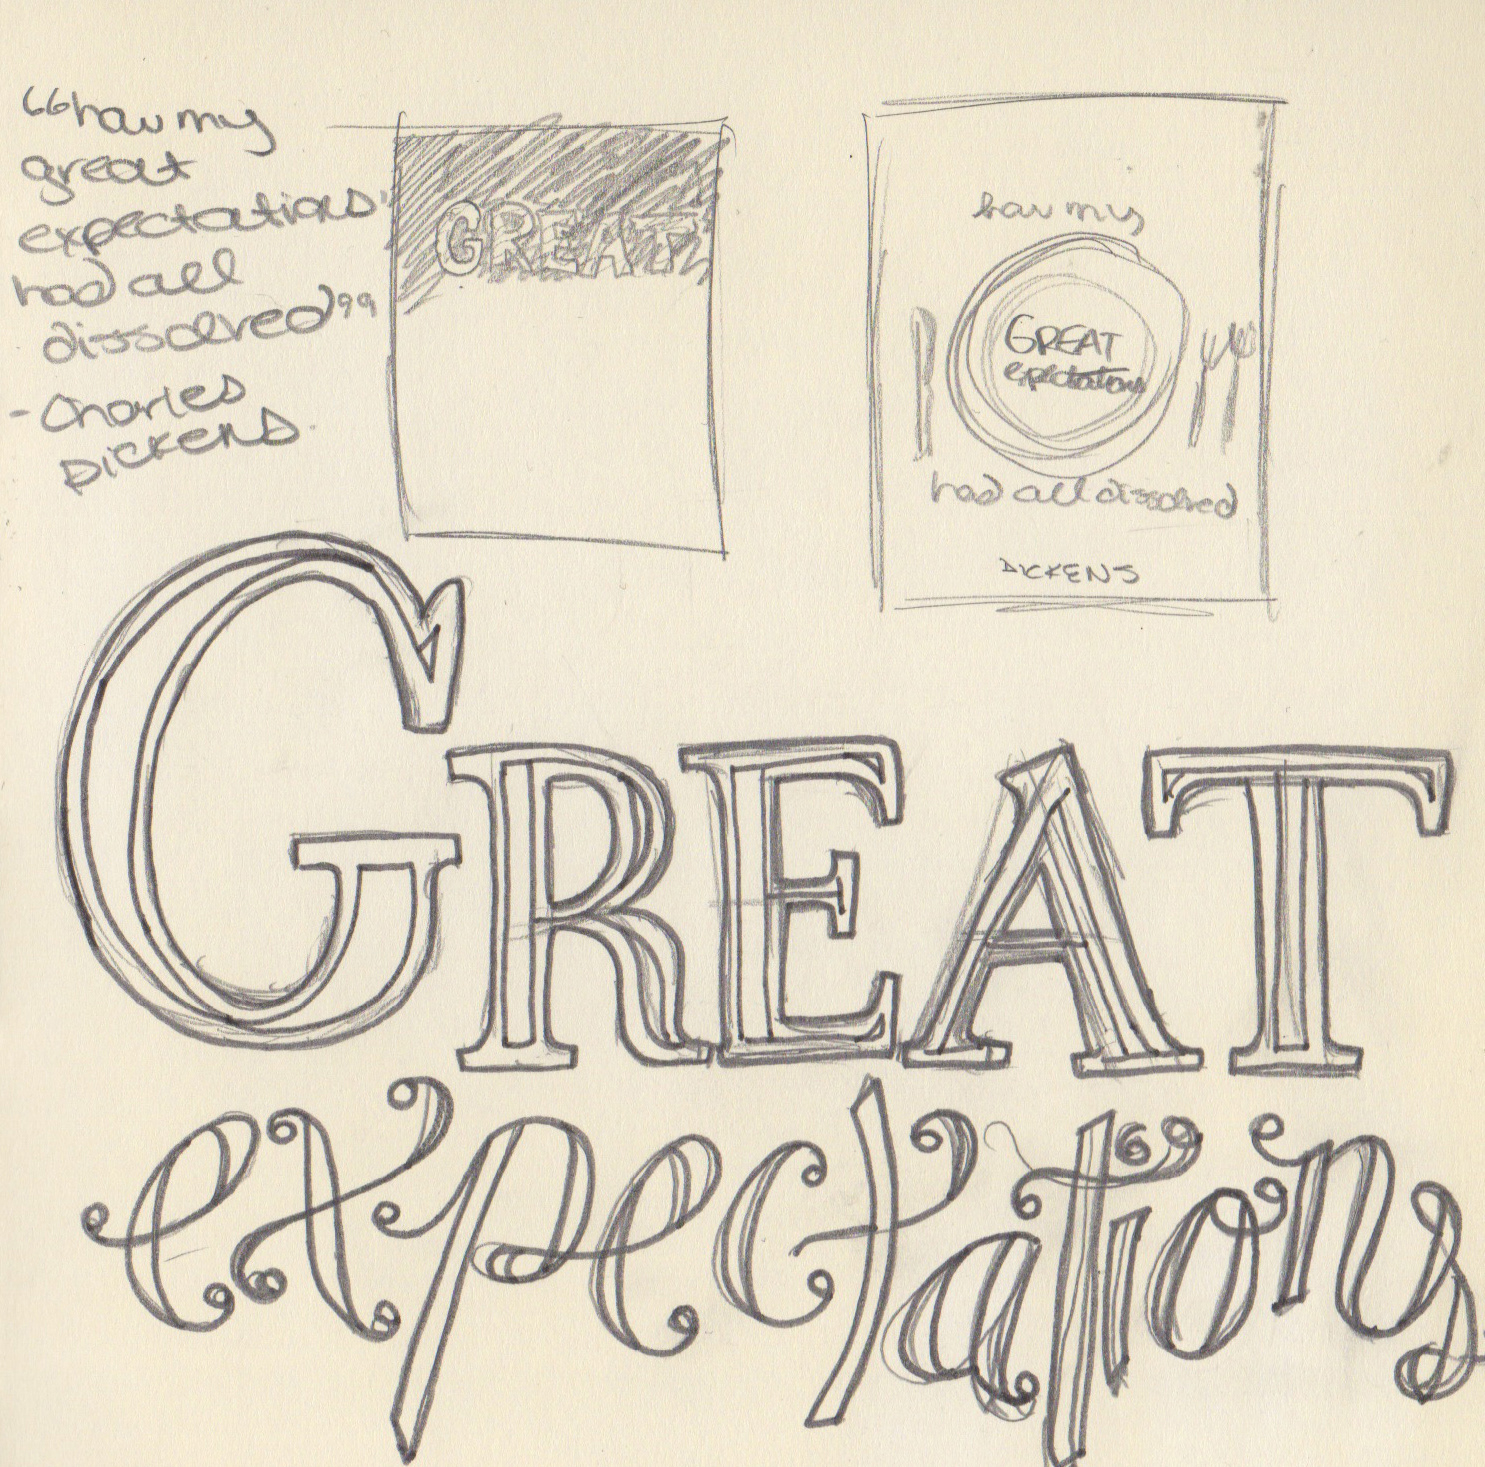 “how my
great
expectations”
had all
dissolved”
- Charles
DICKENS
GREAT
how my
GREAT
expectations
had all dissolved
DICKENS
GREAT
expectations